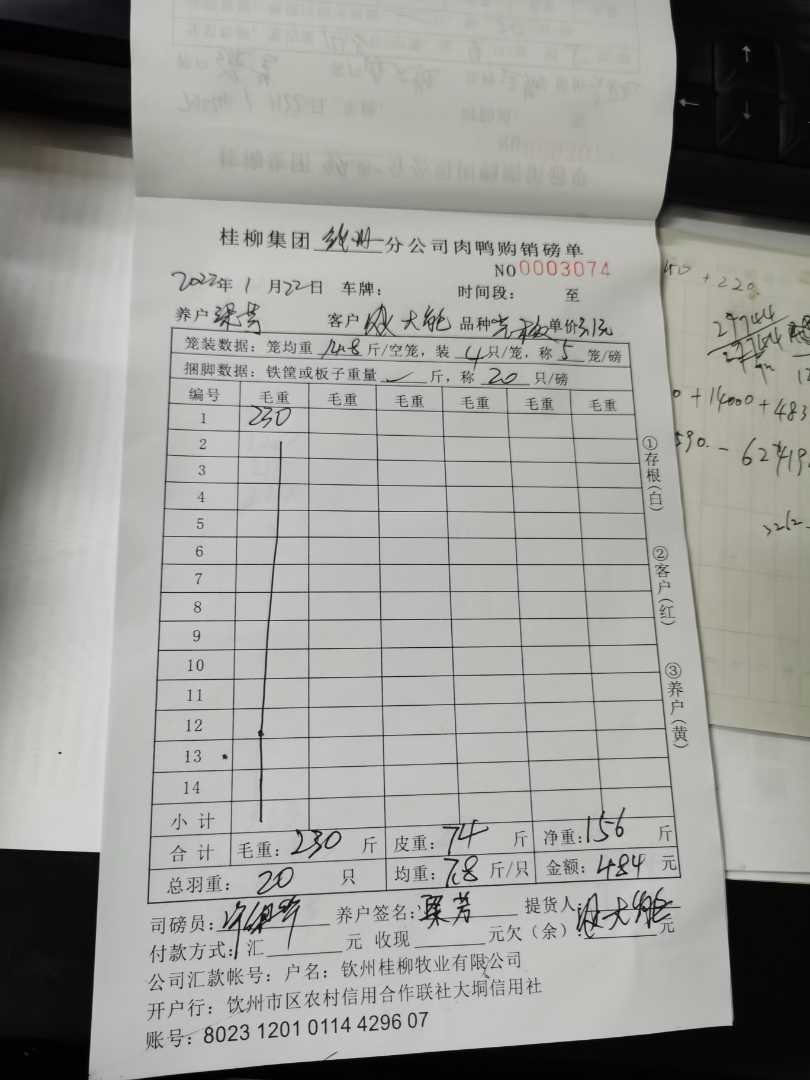 桂柳集团 钦州 分公司肉鸭购销磅单
NO 0003074
2022年 1 月 22 日 车牌: 时间段: 至
养户 梁芳 客户 大能 品种 单价 3.1元
笼装数据: 笼均重 14.8 斤/空笼, 装 4 只/笼, 称 5 笼/磅
捆脚数据: 铁筐或板子重量 斤, 称 20 只/磅
编号 毛重 毛重 毛重 毛重 毛重 毛重
1 230
2
3
4
5
6
7
8
9
10
11
12
13
14
小 计
合 计 毛重: 230 斤 皮重: 74 斤 净重: 156 斤
总羽重: 20 只 均重: 7.8 斤/只 金额: 484 元
司磅员: 养户签名: 梁芳 提货人: 大能
付款方式: 汇 元 收现 元欠(余): 元
公司汇款帐号: 户名: 钦州桂柳牧业有限公司
开户行: 钦州市区农村信用合作联社大垌信用社
账号: 8023 1201 0114 4296 07
①存根(白)
②客户(红)
③养户(黄)
+ 220
29744
+ 14000 + 483
590. - 62419